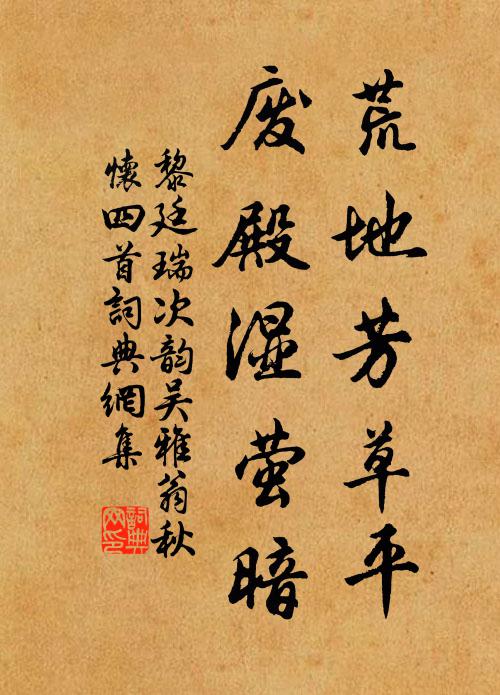 荒地芳草平
废殿湿萤暗
黎廷瑞次韵吴雅翁秋
懷四首詞典網集
詞典網印